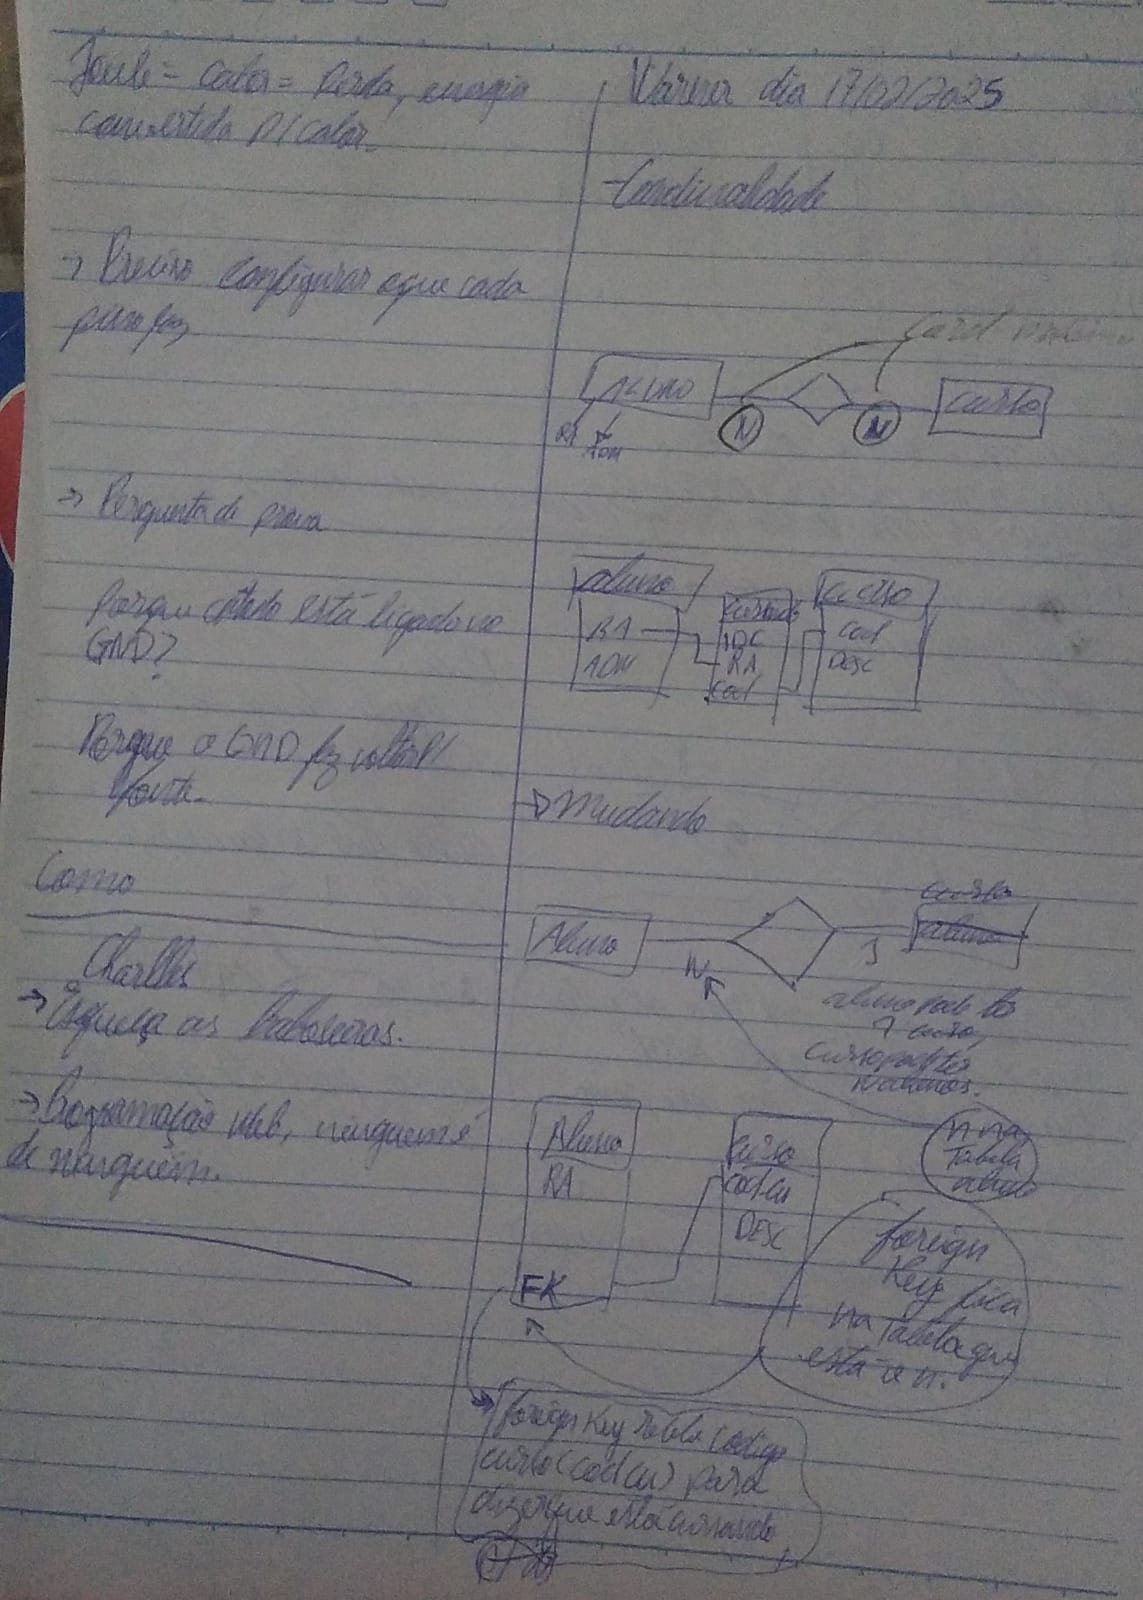 Joule = calor = Perda, energia
convertida p/ calor.
→ Preciso configurar o que cada
pino faz
→ Pergunta de prova
Porque catodo está ligado no
GND?
Porque o GND faz voltar p/
fonte.
Como
Charlles
→ Esqueça as baboseiras.
→ Programação Web, ninguém é
de ninguém.
dia 17/02/2025
Cardinalidade
Card
ALUNO
N
N
curso
RA
aluno
curso
RA
RA
cod
cod
DESC
→ Mudando
curso
Aluno
aluno
N
1
aluno pode ter
1 curso,
curso pode ter
n alunos.
n na
Tabela
aluno
Aluno
RA
FK
curso
codcu
DESC
foreign
Key fica
na tabela que
está o n.
foreign Key recebe codigo
curso (codcu) para
dizer que está cursando